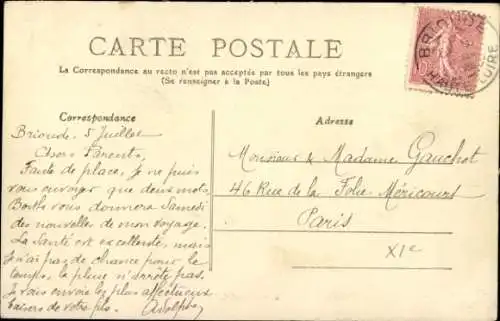 CARTE POSTALE
La Correspondance au recto n'est pas acceptée par tous les pays étrangers
(Se renseigner à la Poste)
BRIOUDE
HAUTE LOIRE
Correspondance
Brioude, 5 Juillet
Chers Parents,
Faute de place, je ne puis
vous envoyer que deux mots.
Berthe vous donnera Samedi
des nouvelles de mon voyage.
La Santé est excellente, mais
je n'ai pas de chance pour le
temps, la pluie n'arrête pas.
Je vais envoie les plus affectueux
baisers de votre fils. Adolphe
Adresse
Monsieur & Madame Gauchot
46 Rue de la Folie Méricourt
Paris
XIe